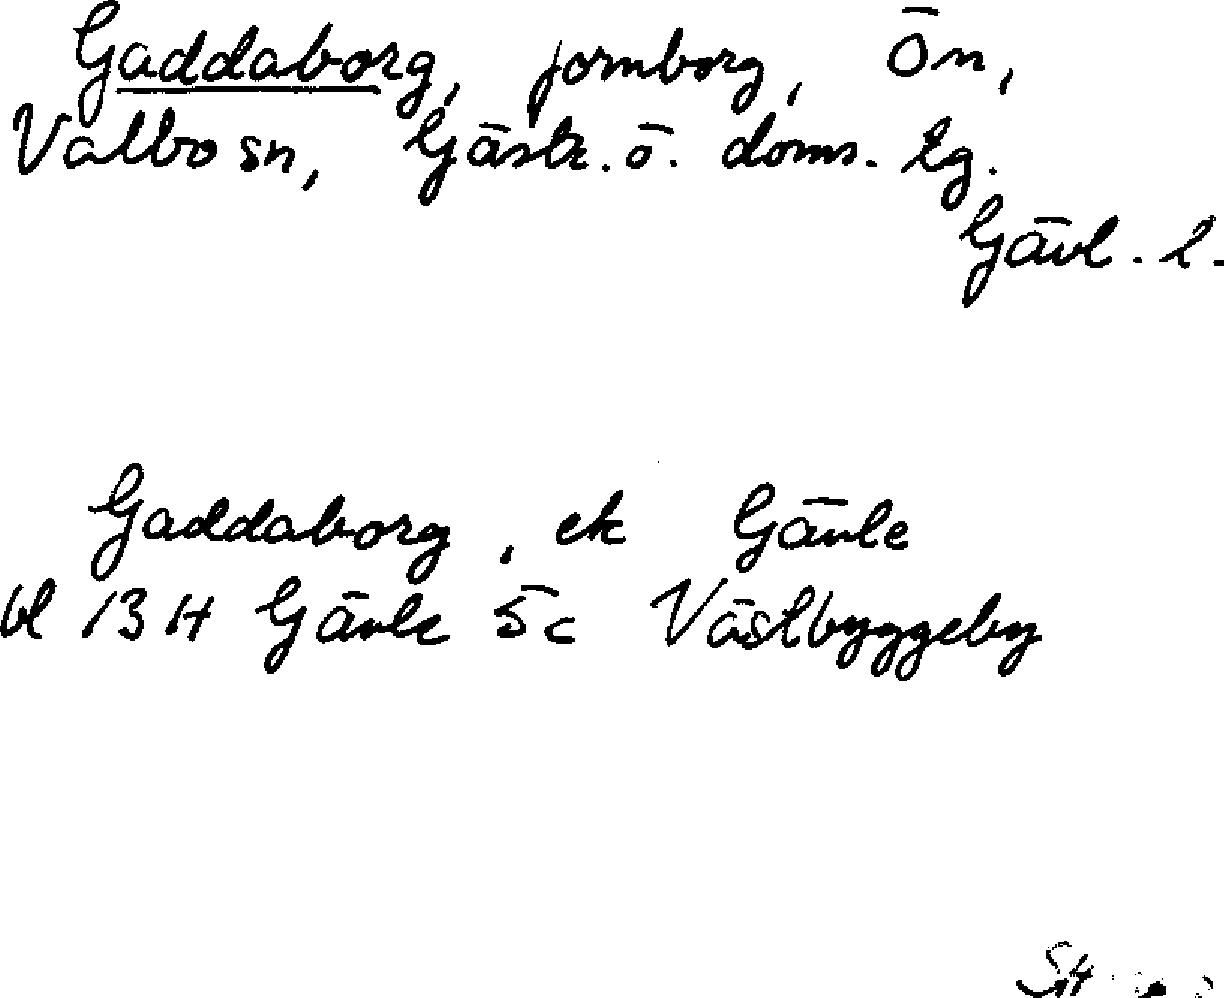 Gaddaborg, fornborg, Ön,
Valbo sn, Gästr. ö. doms. tg.
Gävl. l.
Gaddaborg, ek Gävle
bl 13 H Gävle 5c Västbyggeby